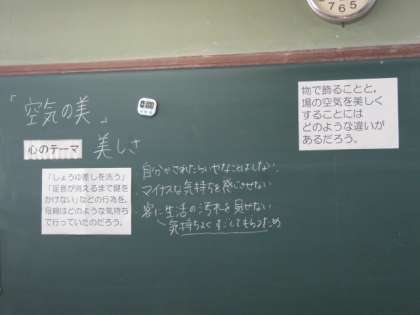 7 6 5
「空気の美」
物で飾ることと、
場の空気を美しく
することには
どのような違いが
あるだろう。
心のテーマ 美しさ
「しょうゆ差しを洗う」
「足音が消えるまで鍵を
かけない」などの行為を、
母親はどのような気持ち
で行っていたのだろう。
自分がされたらいやなことはしない。
マイナスな気持ちを感じさせない
客に生活の汚れを見せない
気持ちよくすごしてもらうため